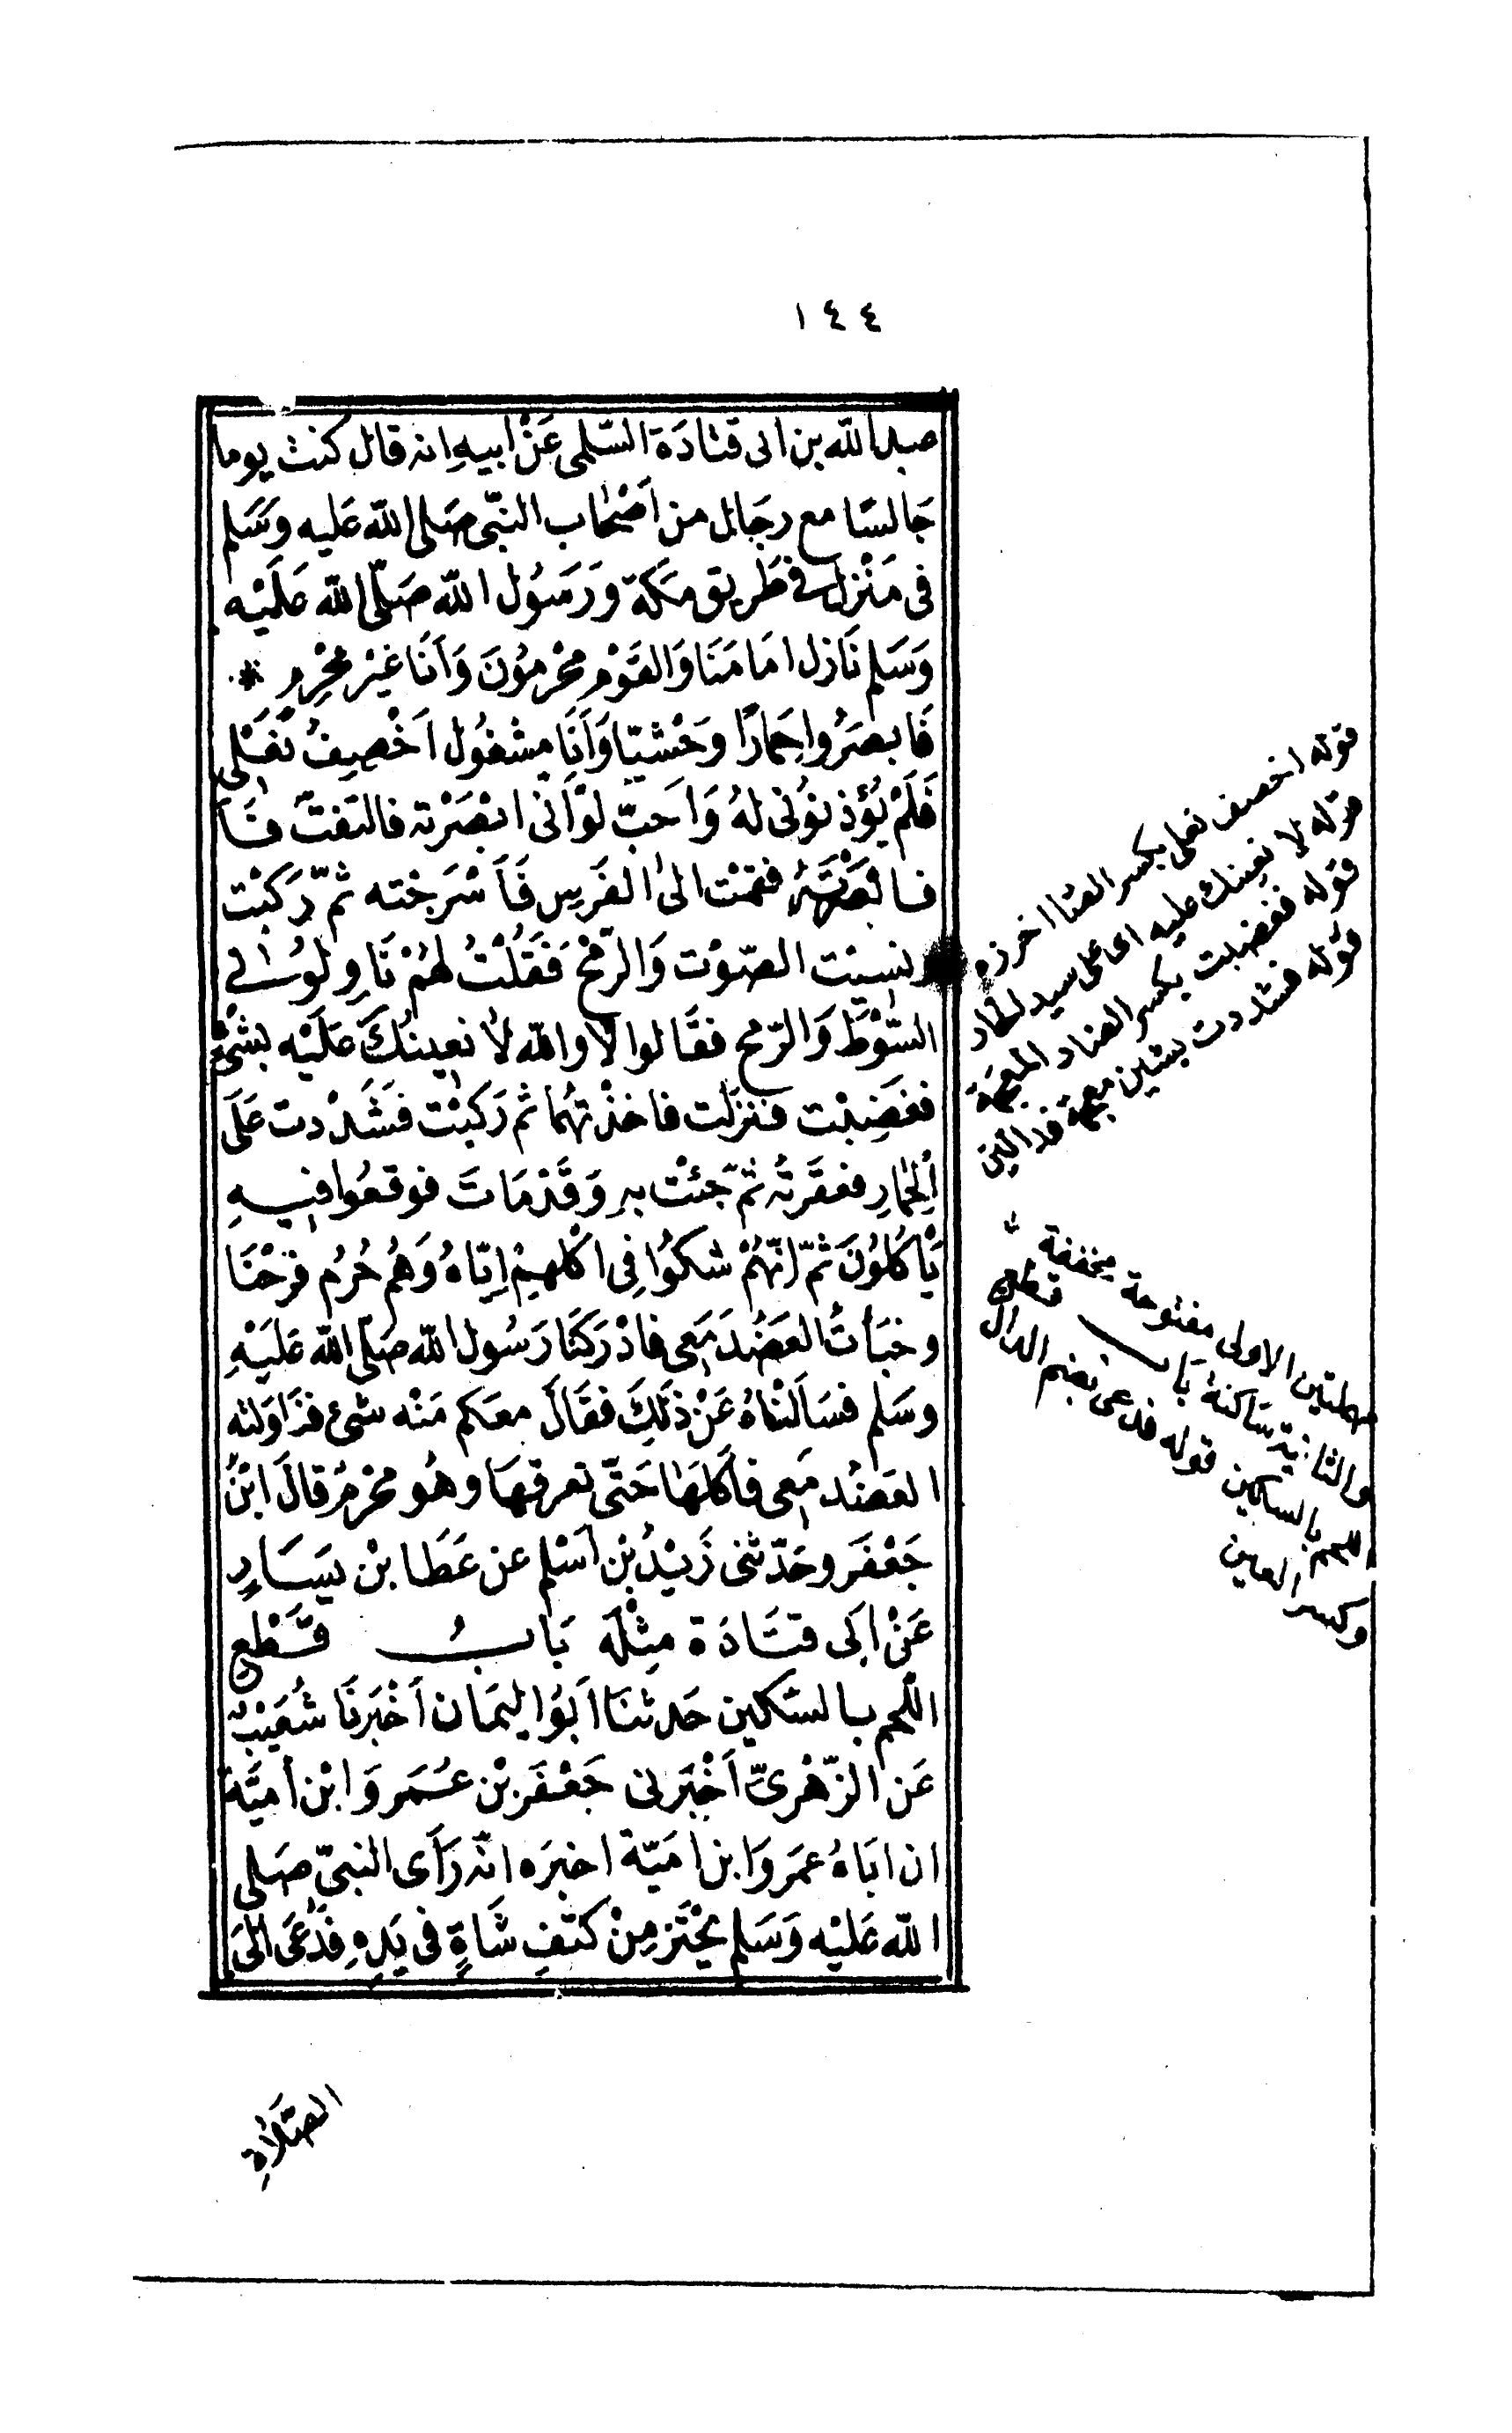 ١٤٤
عبد الله بن ابى قتادَة السّلمى عَنْ ابيهِ انه قال كنت يوما
جَالسًا مع رجَال من اَصْحَاب النبّى صَلى الله عَليه وَسَلم
فى مَنْزل فى طَريق مَكّة وَرَسُول الله صَلّى الله عَلَيْه
وَسَلم نَازل امَامَنَا وَالقَوْم محْرمُونَ وَاَنَا غَيْر محْرِم *
فَابصَرُوا حِمَارًا وحْشيّا وَاَنَا مشغُول اَخْصِفُ نَعْلى
فَلَمْ يُؤذنوُنى لهُ وَاَحَبّ لوْ اَنّى ابْصَرْته فالتفتّ فَا
فابْصَرْتَهُ فقمْت الىٰ الفَرسِ فَاَسْرَجْته ثمّ رَكبْت
ونسِيْت الصّوْت وَالرّمْحَ فَقُلْتُ لهُمْ نَاوِلوُنى
السّوْطَ وَالرّمح فقَالوا لا والله لا نعِينُكَ عَلَيْه بشْئ
فغَضِبْت فنزَلت فاخذْتهُمَا ثم رَكبْت فشَدْدت عَلَى
اْلحِمَارِ فعقَرته ثمّ جئْت بهِ وَقَدْ مَاتَ فوقعُوا فيهِ
يَاْكُلُوْنَ ثمّ انّهُمْ شكوُا فِى اكْلهِمْ اِيّاهُ وَهُم حُرُم فرُحْنَا
وخبَأتُ العَضُدَ مَعِى فادْرَكنَا رَسُول الله صَلّى الله عَلَيْهِ
وسَلم فسَاَلنْاهُ عَنْ ذلَكَ فقَالَ معَكم مَنْه شئ فنَاوَلته
العَضُد مَعِى فاَكلهَا حَتّى تعرقهَا وهُو محْرمُ قالَ ابْنُ
جَعْفَر وحَدّثنى زَيْدُ بْن اَسْلم عن عَطَا بْن يَسَارِ
عَنْ ابَى قتَادَة مِثْلَه بَابُ قَطْعِ
اللّحم بالسّكين حَدثنَا ابَوُا ليمَان اَخْبَرنَا شُعَيْبُ
عَن الزّهْرىّ اَخْبَرنى جَعْفَر بْن عُمَر وَابْن اُميَّة
ان ابَاهُ عمَر وَابن امَيّة اخبَره انّه رَآى النبىّ صَلى
الله عَليْه وَسَلم يحْتَز مِنْ كَتفِ شَاةٍ فى يَدِهِ فَدُعَى الىَ
قوله اخصف نعلى بكسر الصّا اخرزه
قوله لا نعينك عليه اى على صيد الحمار
قوله فغضبت بكسر الضاد المعجمَة
قوله فشددت بشين معجمة فدالين
مهملتين الاولى مفتوحة مخففة
والثانية سَاكنة بَاب قطع
اللحم بالسكين قوله فدعى بضم الدال
وكسر العين
الصّلاَةِ